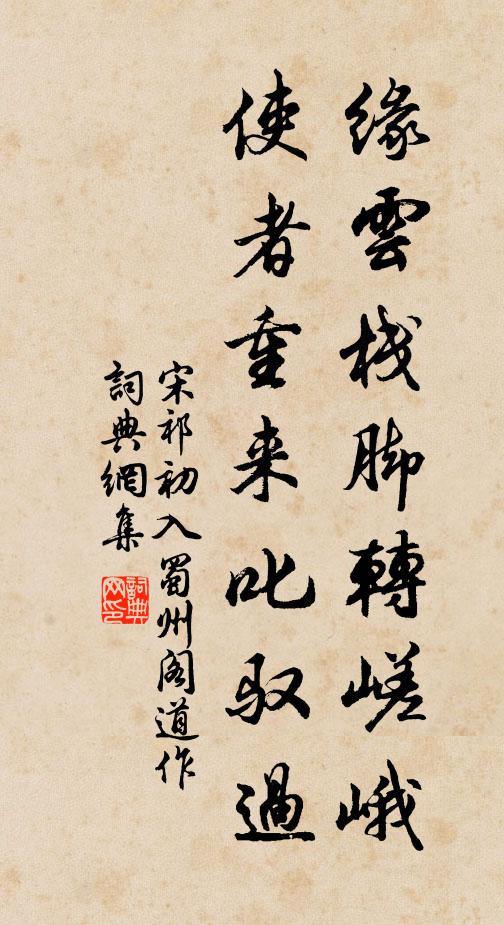 緣雲棧脚轉嵯峨
使者重来叱馭過
宋祁初入蜀州閣道作
詞典網集
詞典网印